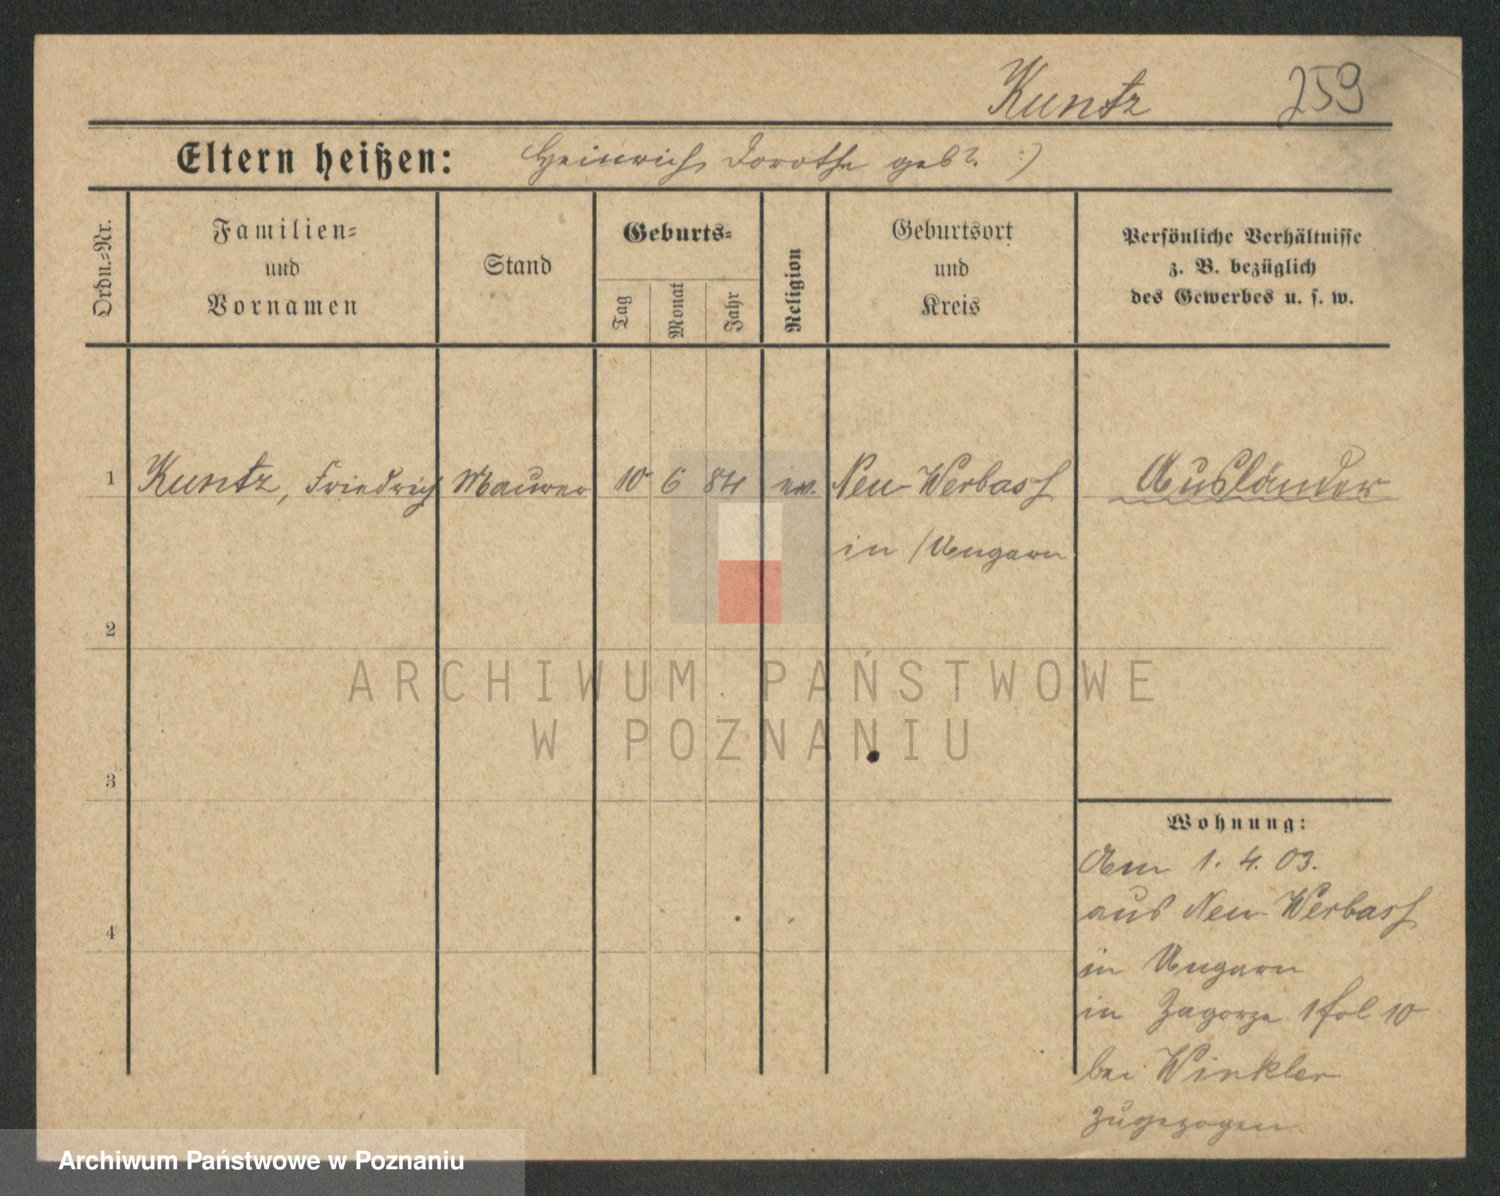 Kuntz 259
Eltern heißen: Heinrich Dorothe geb. ?. :)
Ordn.-Nr.
Familien-
und
Vornamen
Stand
Geburts-
Tag
Monat
Jahr
Religion
Geburtsort
und
Kreis
Persönliche Verhältnisse
z. B. bezüglich
des Gewerbes u. s. w.
1 Kuntz, Friedrich Maurer 10 6 84 ev. Neu-Werbass Ausländer
in /Ungarn
2
ARCHIWUM PAŃSTWOWE
W POZNANIU
3
Wohnung:
Am 1. 4. 03.
aus Neu-Werbass
4
in Ungarn
in Zagorze 1 fol 10
bei Winkler
zugezogen.
Archiwum Państwowe w Poznaniu